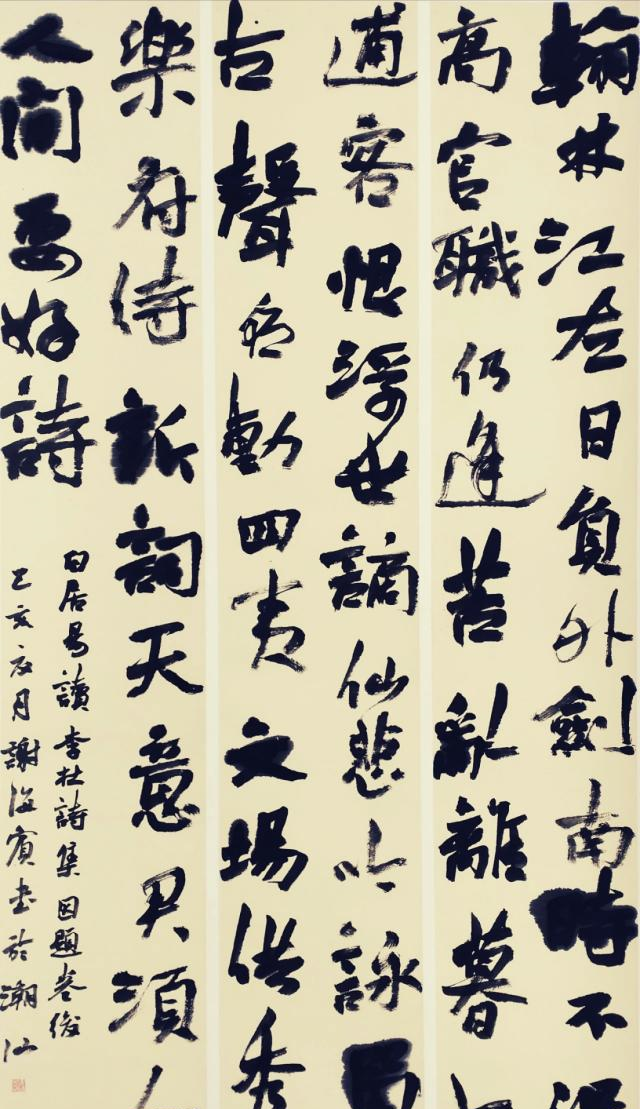 翰林江左日負外劍南時不
高官職仍逢苦亂離暮
逋客恨浮世謫仙悲吟詠留
古聲名動四夷文場供秀
樂府待新詞天意君須
人間要好詩
白居易讀李杜詩集因題卷後
己亥夏月謝海賓書於潮汕